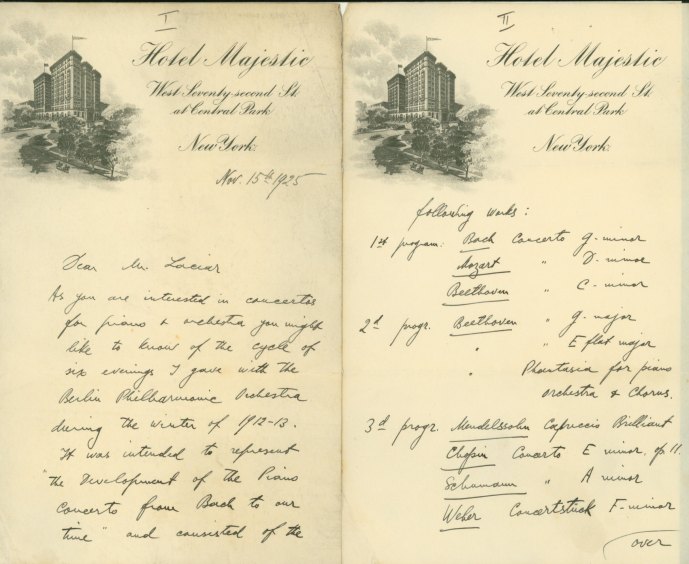 I
Hotel Majestic
West Seventy-second St.
at Central Park
New York.
Nov. 15th 1925
Dear Mr. Laciar
As you are interested in concertos
for piano & orchestra you might
like to know of the cycle of
six evenings I gave with the
Berlin Philharmonic Orchestra
during the winter of 1912-13.
It was intended to represent
"the Development of the Piano
Concerto from Bach to our
time" and consisted of the
II
Hotel Majestic
West Seventy-second St.
at Central Park
New York.
following works:
1st progam: Bach Concerto g-minor
Mozart " D-minor
Beethoven " C-minor
2d progr. Beethoven " g-major
" " E flat major
" Phantasia for piano
orchestra & Chorus.
3d progr. Mendelssohn Capriccio Brilliant
Chopin Concerto E minor, op 11.
Schumann " A minor
Weber Concertstück F-minor
over